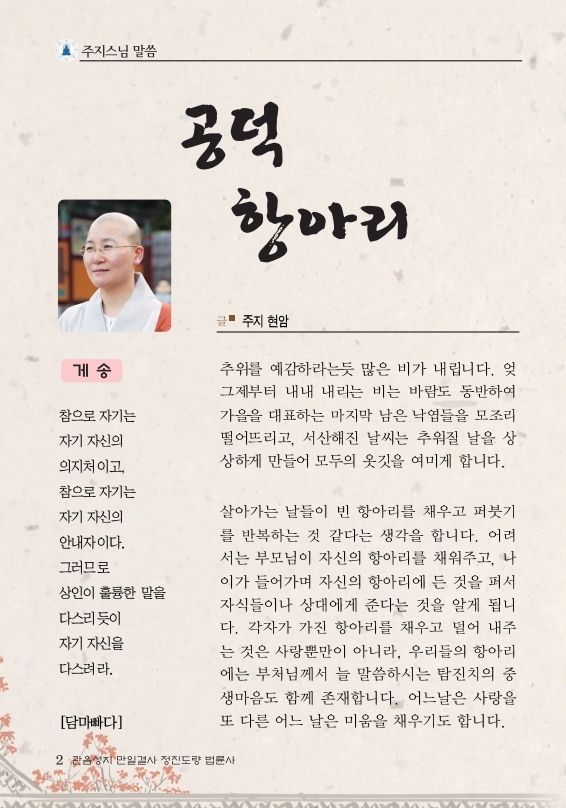 주지스님 말씀
공덕
항아리
글 주지 현암
게 송
참으로 자기는
자기 자신의
의지처이고,
참으로 자기는
자기 자신의
안내자이다.
그러므로
상인이 훌륭한 말을
다스리듯이
자기 자신을
다스려라.
[담마빠다]
추위를 예감하라는듯 많은 비가 내립니다. 엊
그제부터 내내 내리는 비는 바람도 동반하여
가을을 대표하는 마지막 남은 낙엽들을 모조리
떨어뜨리고, 서산해진 날씨는 추워질 날을 상
상하게 만들어 모두의 옷깃을 여미게 합니다.
살아가는 날들이 빈 항아리를 채우고 퍼붓기
를 반복하는 것 같다는 생각을 합니다. 어려
서는 부모님이 자신의 항아리를 채워주고, 나
이가 들어가며 자신의 항아리에 든 것을 퍼서
자식들이나 상대에게 준다는 것을 알게 됩니
다. 각자가 가진 항아리를 채우고 덜어 내주
는 것은 사랑뿐만이 아니라, 우리들의 항아리
에는 부처님께서 늘 말씀하시는 탐진치의 중
생마음도 함께 존재합니다. 어느날은 사랑을
또 다른 어느 날은 미움을 채우기도 합니다.
2 관음성지 만일결사 정진도량 법륜사